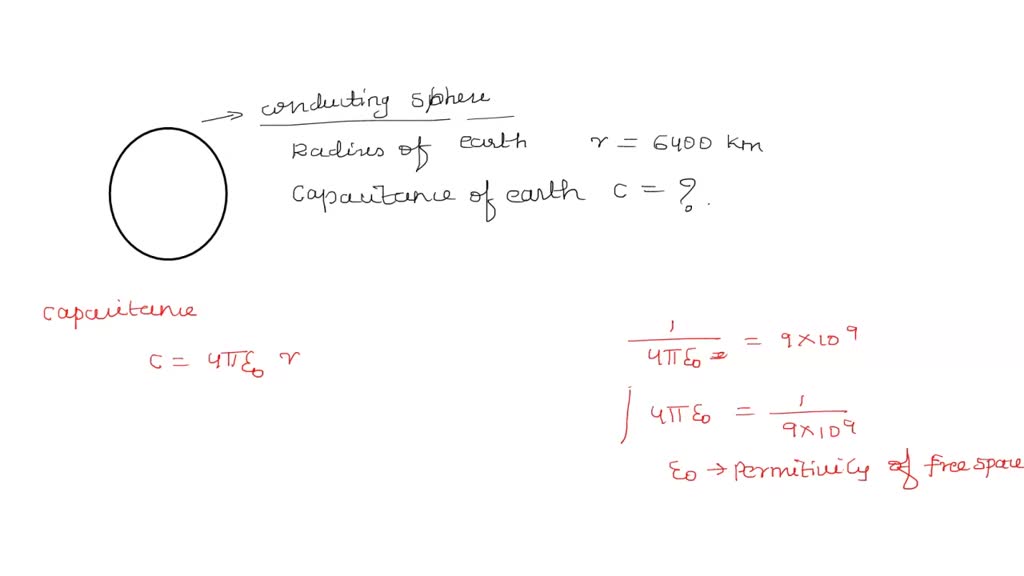 conducting sphere
Radius of earth r = 6400 km
Capacitance of earth c = ?
capacitance
c = 4πε₀ r
1/4πε₀ = 9×10⁹
4πε₀ = 1/9×10⁹
ε₀ → permitivity of free space